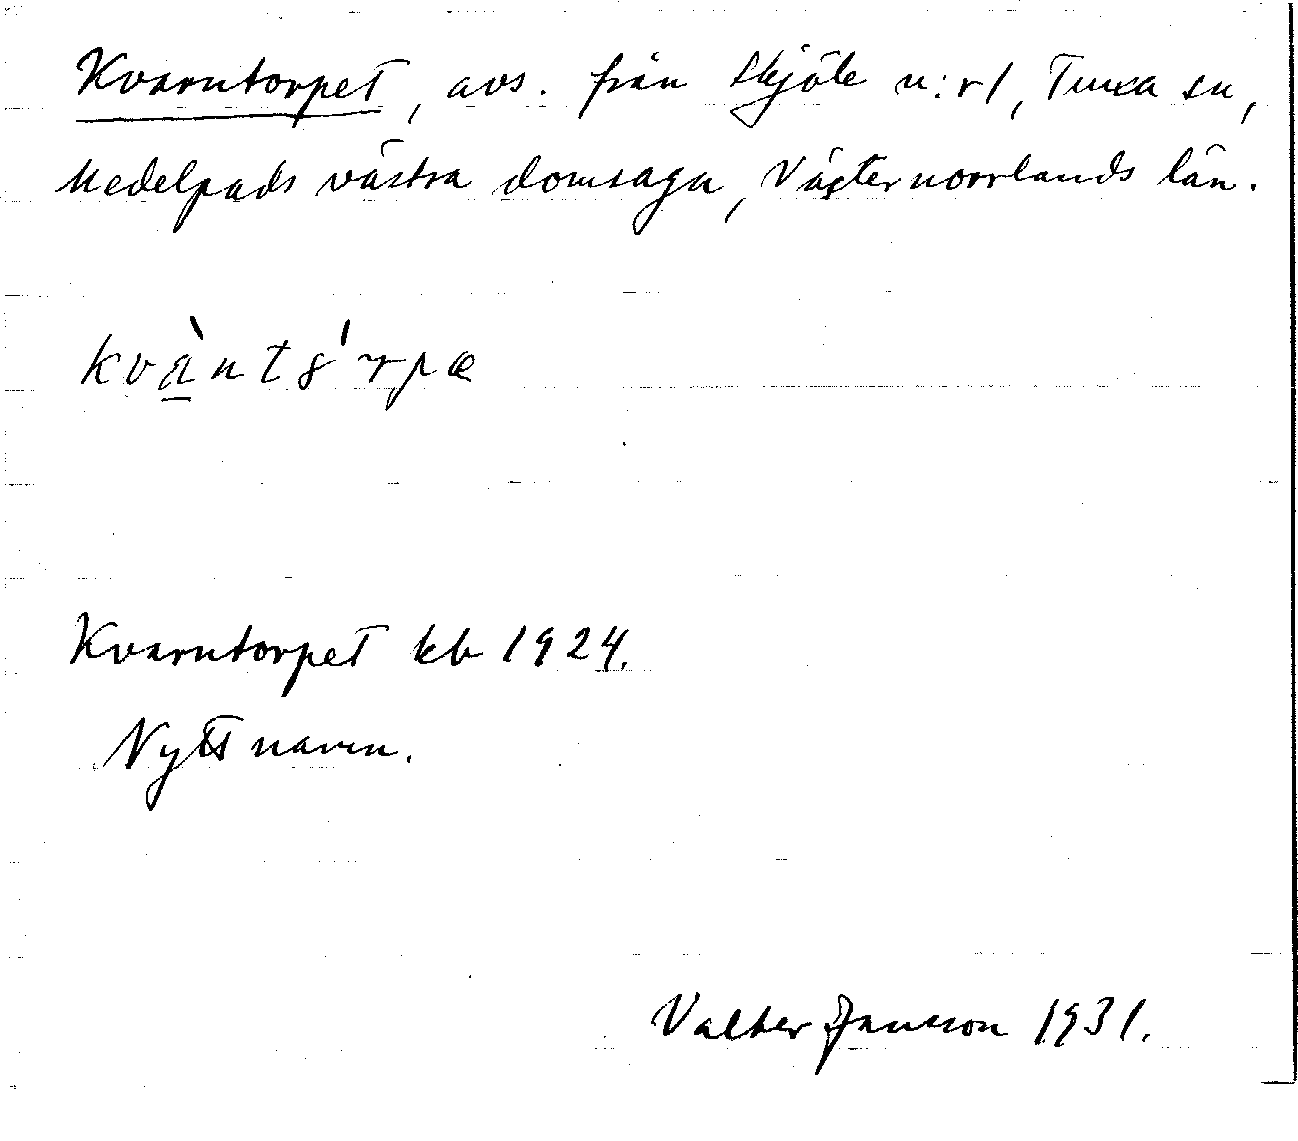 Kvarntorpet, avs. från Skjöle n:r 1, Tuna sn,
Medelpads västra domsaga, Västernorrlands län.
kvàntó̤rpæ
Kvarntorpet kb 1924.
Nytt namn.
Valter Jansson 1931.